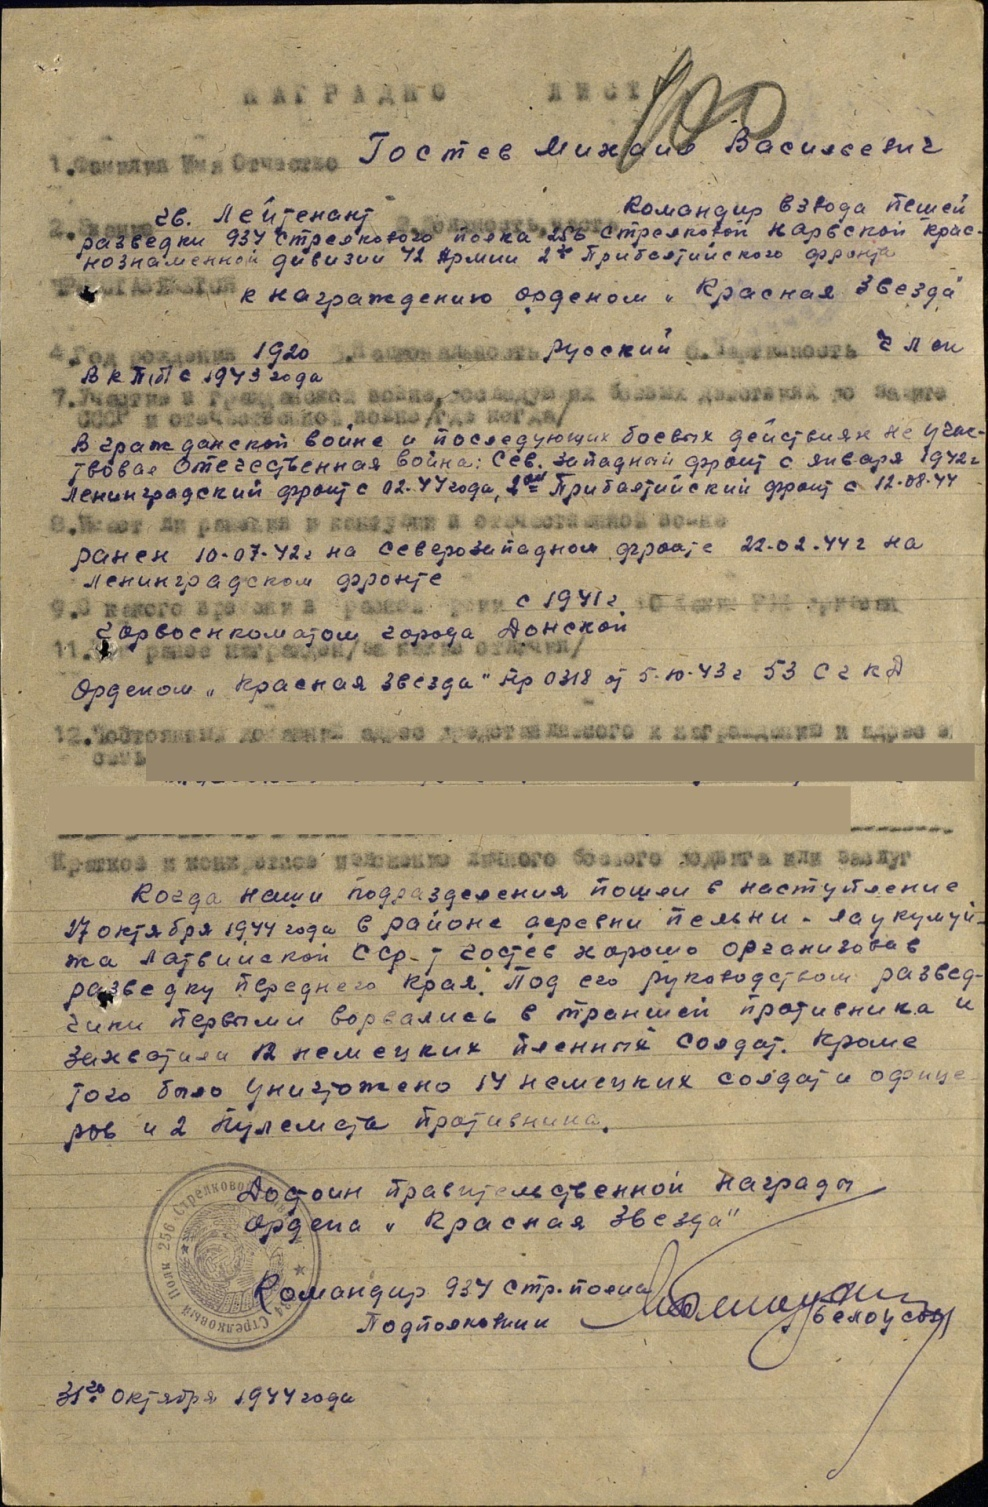 НАГРАДНО ЛИСТ
100
1.Фамилия Имя Отчество Гостев Михаил Васильевич
2.Звание гв. Лейтенант 3.Должность, часть Командир взвода пешей
разведки 937 стрелкового полка 256 стрелковой Нарвской Крас-
нознаменной дивизии 42 Армии 2го Прибалтийского фронта
ПРЕДСТАВЛЯЕТСЯ к награждению орденом „Красная Звезда"
4.Год рождения 1920 5.Национальность русский 6.Партийность член
ВКП(б) с 1943 года
7.Участие в гражданской войне, последующих боевых действиях по защите
СССР и отечественной войне/где когда/
В гражданской войне и последующих боевых действиях не учас-
твовал Отечественная война: Сев. Западный фронт с января 1942г
Ленинградский фронт с 02.44 года, 2ой Прибалтийский фронт с 12.08.44
8.Имеет ли ранения и контузии в отечественной войне
ранен 10-07-42г на Северозападном фронте 22.02.44г на
Ленинградском фронте
9.С какого времени в Красной Армии с 1941г. 10 Каким РВК призван
Горвоенкоматом города Донской
11.Чем ранее награжден/за какие отличия/
Орденом „Красная Звезда" Пр 0318 от 5-10-43г 53 СгКД
12.Постоянный домашний адрес представляемого к награждению и адрес е
семь
Краткое и конкретное изложение личного боевого подвига или заслуг
Когда наши подразделения пошли в наступление
27 октября 1944 года в районе деревни Пельни - Лаукумуй-
жа Латвийской ССР - т Гостев хорошо организовав
разведку переднего края. Под его руководством развед-
чики первыми ворвались в траншеи противника и
захватили 12 немецких пленных солдат. Кроме
того было уничтожено 14 немецких солдат и офице-
ров и 2 пулемета противника.
Достоин правительственной награды
ордена „Красная Звезда"
937 Стрелковый Полк 256 Стрелковой
Командир 937 стр. полка
Подполковник Белоусов
31го октября 1944 года